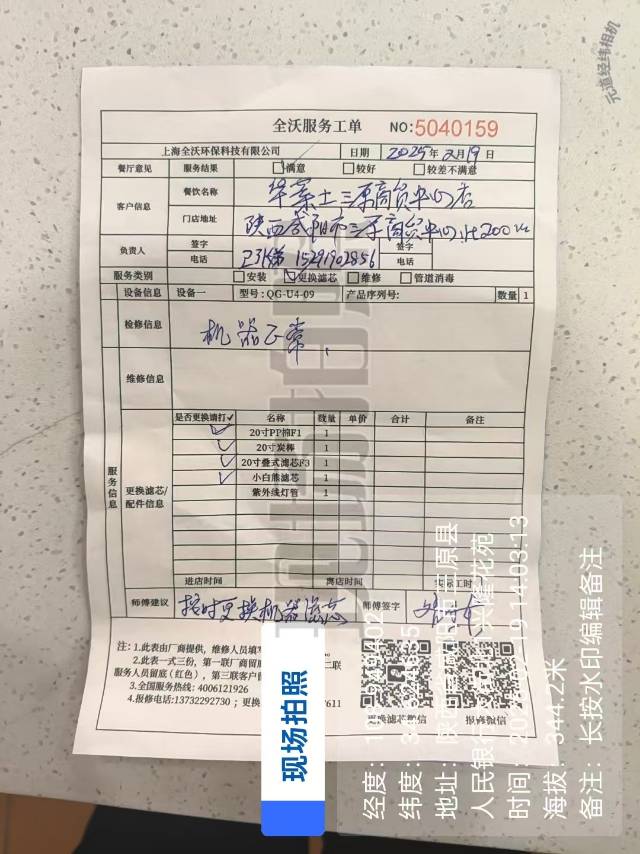 元道经纬相机
全沃服务工单 NO:5040159
上海全沃环保科技有限公司 日期 2025年2月19日
餐厅意见 服务结果 满意 较好 较差不满意
客户信息 餐饮名称 华莱士三原商贸中心店
门店地址 陕西咸阳市三原商贸中心北200m
负责人 签字 签字
电话 15291902856 电话
服务类别 安装 更换滤芯 维修 管道消毒
设备信息 设备一 型号:QG-U4-09 产品序列号: 数量 1
检修信息 机器正常
维修信息
服务信息
更换滤芯/配件信息
是否更换请打✓ 名称 数量 单价 合计 备注
✓ 20寸PP棉F1 1
✓ 20寸炭棒 1
✓ 20寸叠式滤芯F3 1
✓ 小白熊滤芯 1
紫外线灯管 1
进店时间 离店时间 实际工时
师傅建议 按时更换机器滤芯 师傅签字
注:1.此表由厂商提供，维修人员填
2.此表一式三份，第一联厂商留
二联
服务人员留底（红色），第三联客户
3.全国服务热线: 4006121926
4.报修电话:13732292730；更换
7611
更换滤芯微信 报修微信
现场拍照
经度：
纬度：
地址：陕西省咸阳市三原县
人民银行
兴隆花苑
时间：
14:03:13
海拔：344.2米
备注：长按水印编辑备注